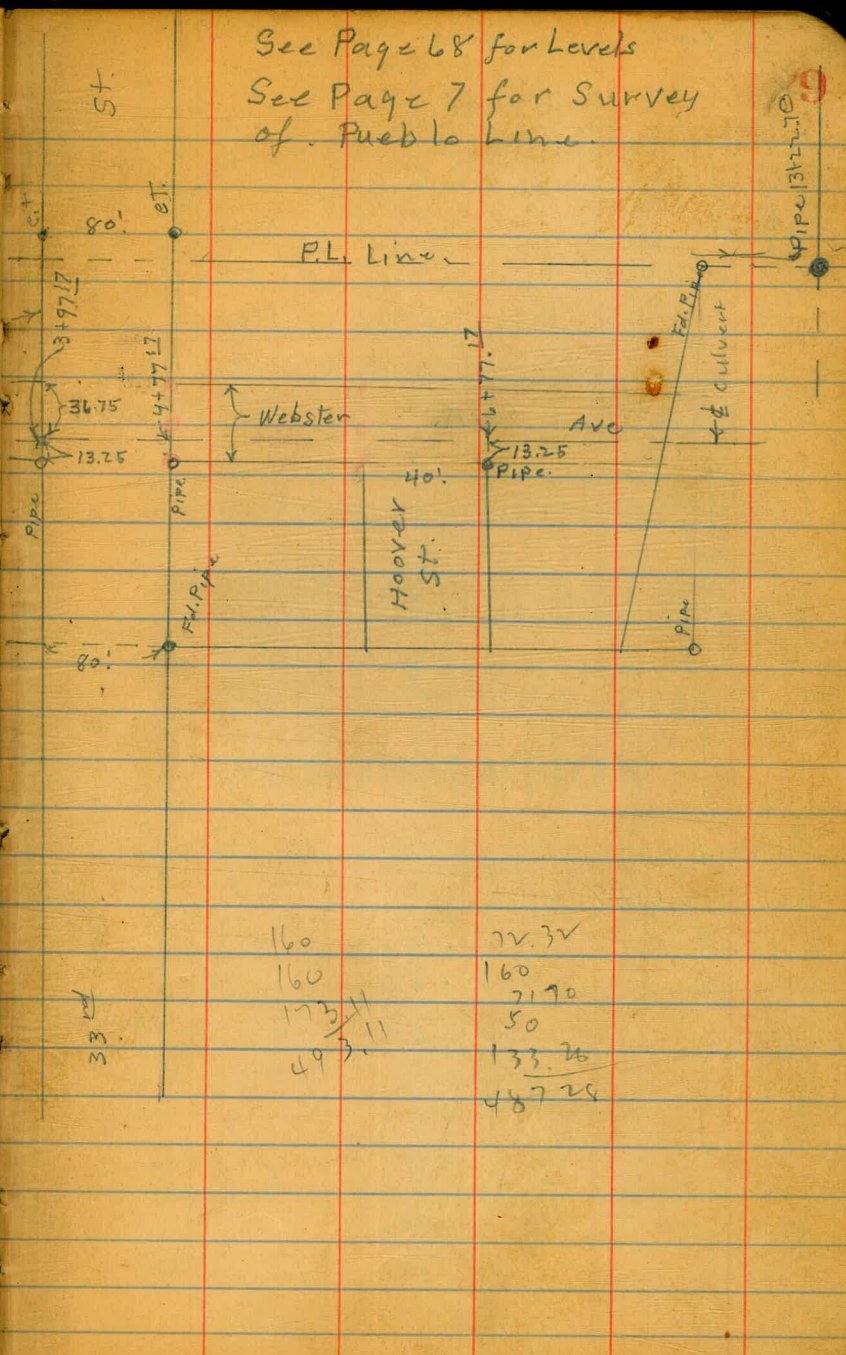 See Page 68 for Levels
See Page 7 for Survey
of. Pueblo Line.
9
St.
Pipe 13+22.70
80'.
P.L. Line.
Fd. Pipe
3+97 17
4+77 17
6+77. 17
℄ Culvert
36.75
Webster
Ave
13.25
13.25
Pipe.
40'.
Pipe
Pipe
Hoover
St.
Fd. Pipe
Pipe
80'.
33rd
160
160
173.11
493.11
72.32
160
7190
50
133.26
487 28